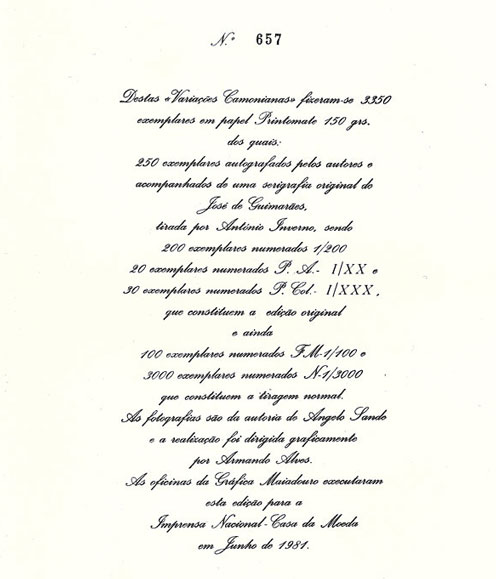 N.º 657
Destas «Variações Camonianas» fizeram-se 3350
exemplares em papel Printomate 150 grs.
dos quais:
250 exemplares autografados pelos autores e
acompanhados de uma serigrafia original de
José de Guimarães,
tirada por António Inverno, sendo
200 exemplares numerados 1/200
20 exemplares numerados P. A.- I/XX e
30 exemplares numerados P. Col.- I/XXX,
que constituem a edição original
e ainda
100 exemplares numerados FM-1/100 e
3000 exemplares numerados N-1/3000
que constituem a tiragem normal.
As fotografias são da autoria de Angelo Sande
e a realização foi dirigida graficamente
por Armando Alves.
As oficinas da Gráfica Maiadouro executaram
esta edição para a
Imprensa Nacional-Casa da Moeda
em Junho de 1981.